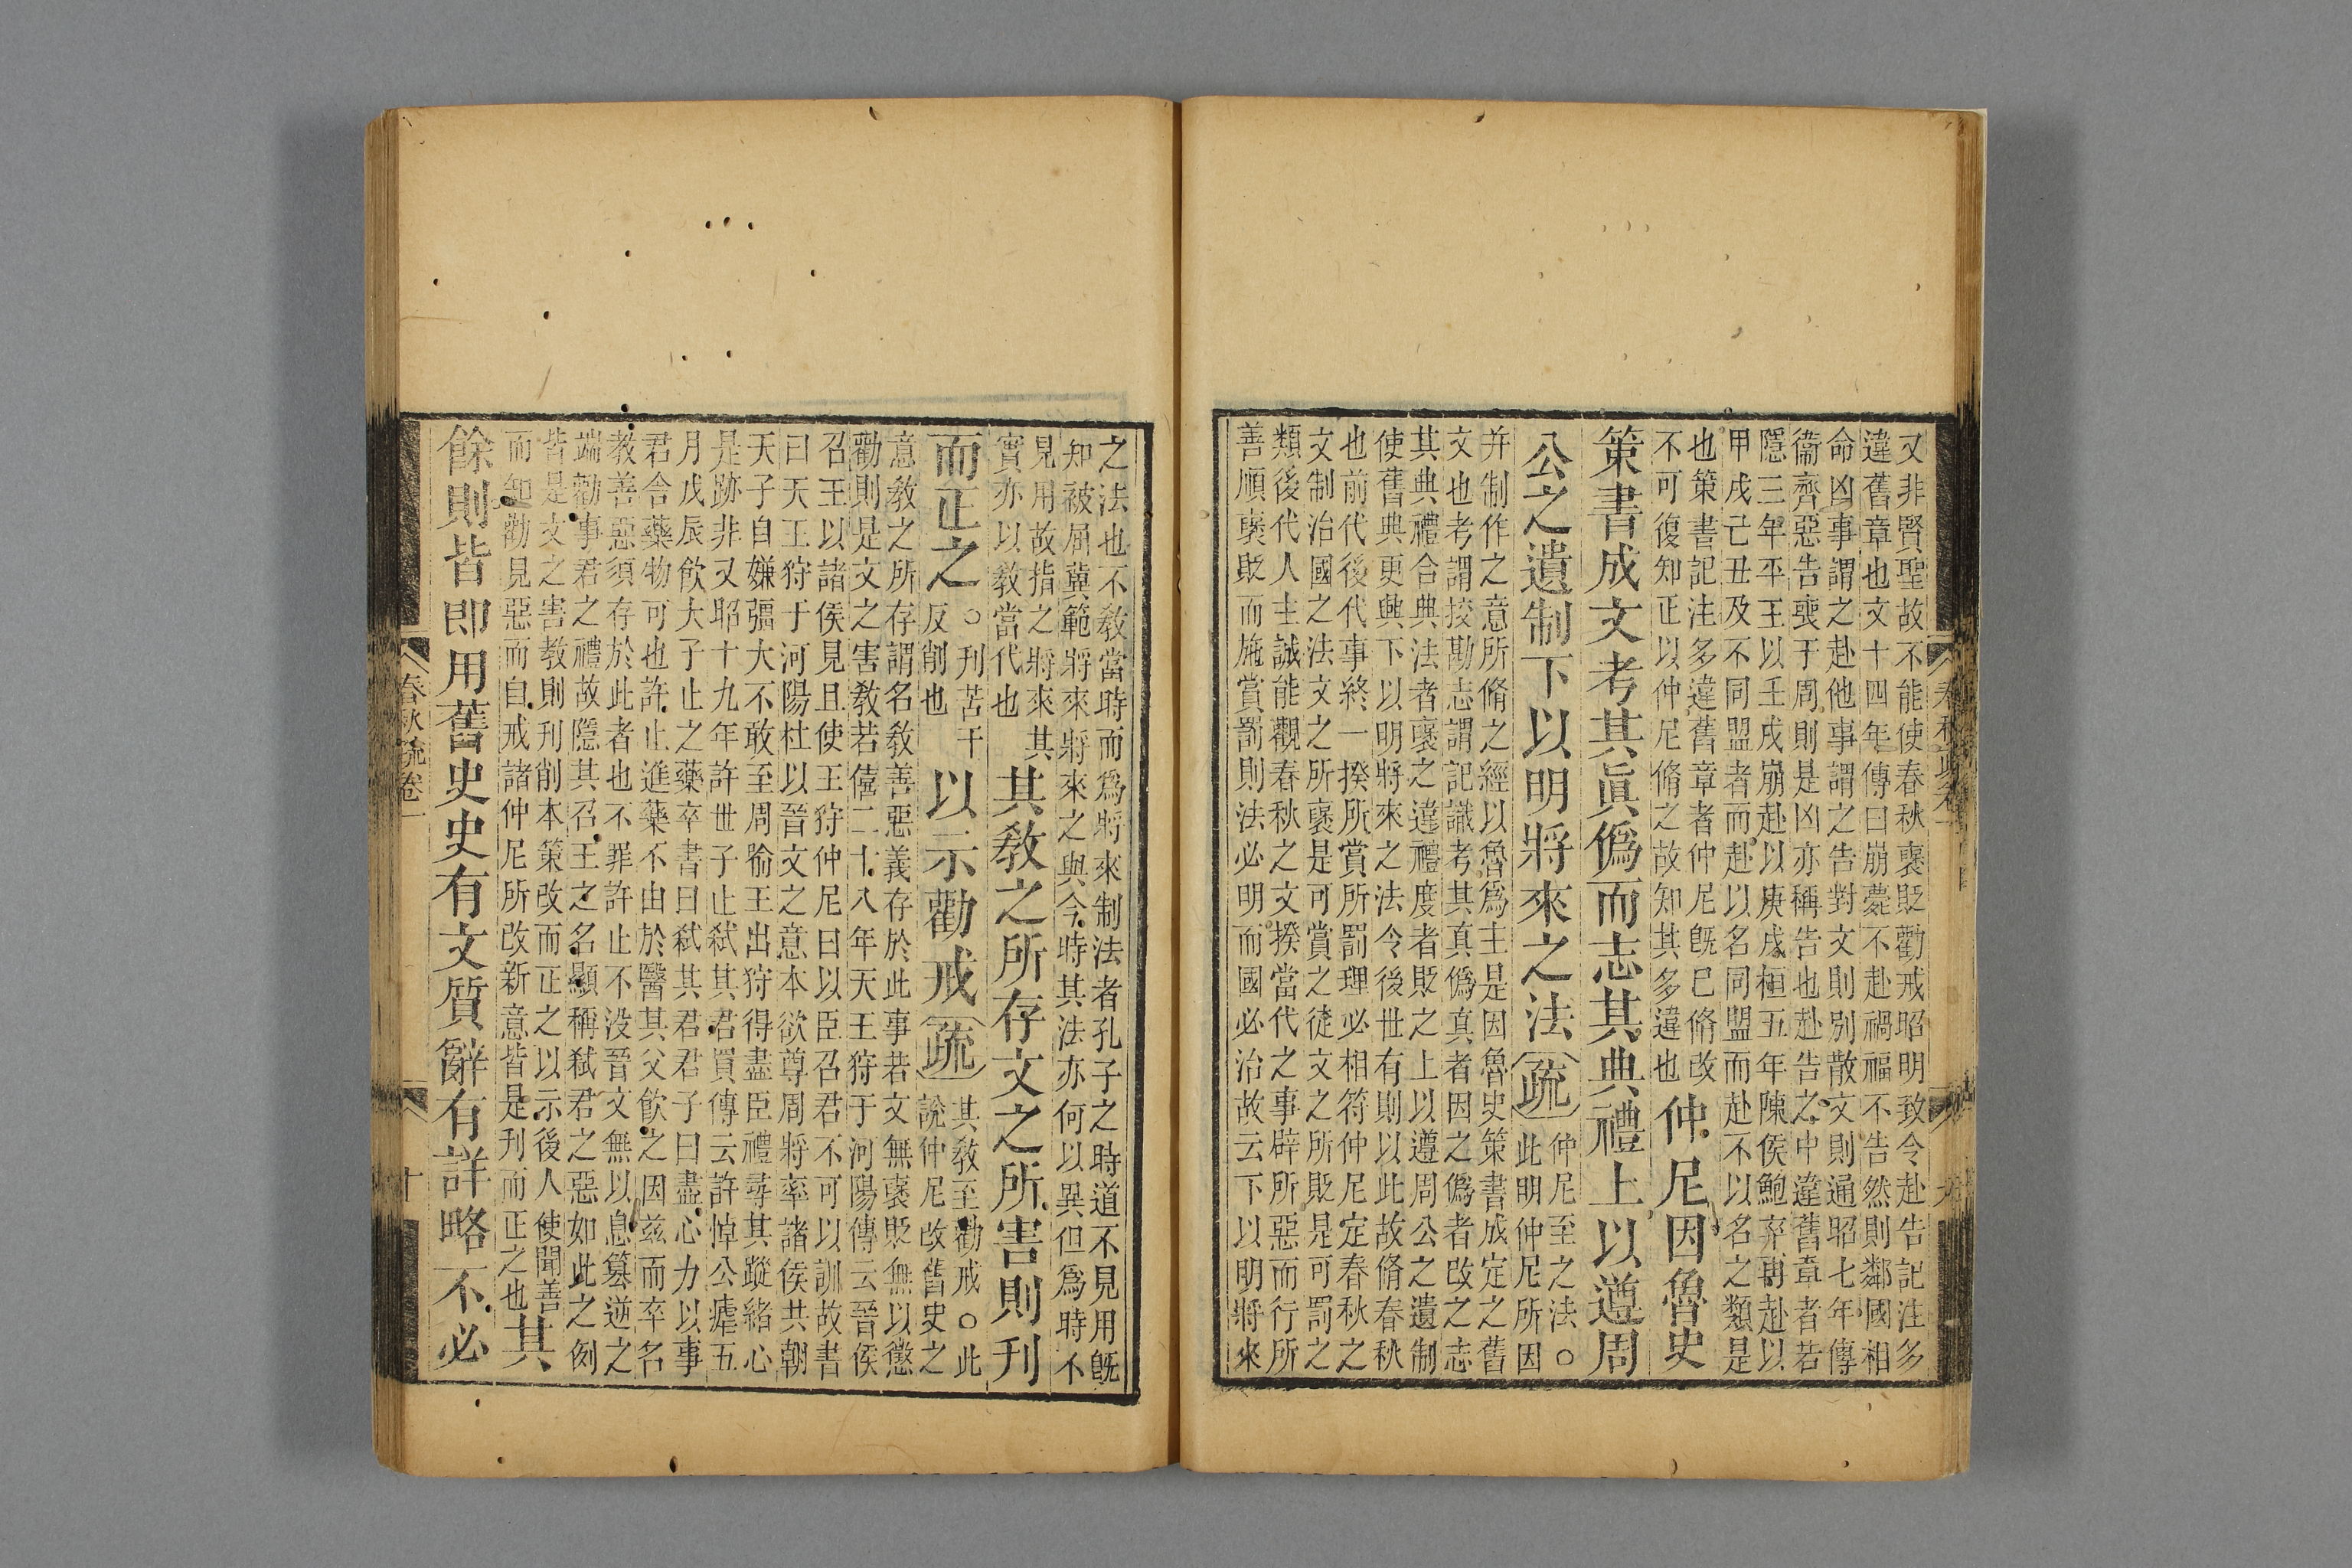 又非賢聖故不能使春秋襃貶勸戒昭明致令赴告記注多
違舊章也文十四年傳曰崩薨不赴禍福不告然則鄰國相
命凶事謂之赴他事謂之告對文則別散文則通昭七年傳
衞齊惡告喪于周則是凶亦稱告也赴告之中違舊章者若
隱三年平王以壬戌崩赴以庚戌桓五年陳侯鮑卒再赴以
甲戌己丑及不同盟者而赴以名同盟而赴不以名之類是
也策書記注多違舊章者仲尼旣已脩改
不可復知正以仲尼脩之故知其多違也
仲尼因魯史
策書成文考其眞僞而志其典禮上以遵周
公之遺制下以明將來之法
疏
仲尼至之法○
此明仲尼所因
并制作之意所脩之經以魯爲主是因魯史策書成定之舊
文也考謂挍勘志謂記識考其真僞真者因之僞者改之志
其典禮合典法者襃之違禮度者貶之上以遵周公之遺制
使舊典更興下以明將來之法令後世有則以此故脩春秋
也前代後代事終一揆所賞所罰理必相符仲尼定春秋之
文制治國之法文之所襃是可賞之徒文之所貶是可罰之
類後代人主誠能觀春秋之文揆當代之事辟所惡而行所
善順襃貶而施賞罰則法必明而國必治故云下以明將來
之法也不教當時而爲將來制法者孔子之時道不見用旣
知被屈冀範將來將來之與今時其法亦何以異但爲時不
見用故指之將來其
實亦以教當代也
其教之所存文之所害則刋
而正之
○刋苦干
反削也
以示勸戒
疏
其教至勸戒○此
說仲尼改舊史之
意教之所存謂名教善惡義存於此事若文無襃貶無以懲
勸則是文之害教若僖二十八年天王狩于河陽傳云晉侯
召王以諸侯見且使王狩仲尼曰以臣召君不可以訓故書
曰天王狩于河陽杜以晉文之意本欲尊周將率諸侯共朝
天子自嫌彊大不敢至周喻王出狩得盡臣禮尋其蹤緒心
是跡非又昭十九年許世子止弒其君買傳云許悼公瘧五
月戊辰飲大子止之藥卒書曰弒其君君子曰盡心力以事
君舍藥物可也許止進藥不由於醫其父飲之因茲而卒名
教善惡須存於此者也不罪許止不没晉文無以息篡逆之
端勸事君之禮故隱其召王之名顯稱弒君之惡如此之例
皆是文之害教則刋削本策改而正之以示後人使聞善
而知勸見惡而自戒諸仲尼所改新意皆是刋而正之也
其
餘則皆即用舊史史有文質辭有詳略不必
春秋疏卷一
十